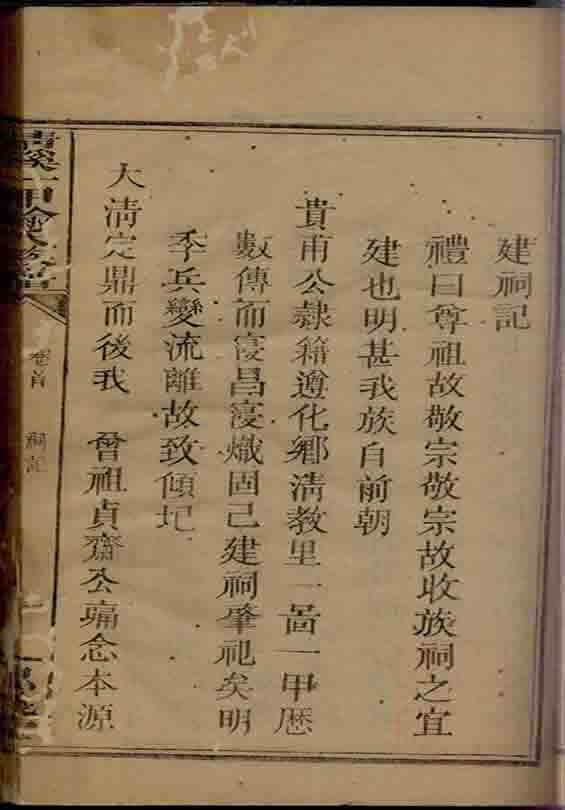 建祠記
禮曰尊祖故敬宗敬宗故收族祠之宜
建也明甚我族自前朝
貴甫公隸籍遵化鄉淸教里一啚一甲歷
數傳而寖昌寖熾固己建祠肇祀矣明
季兵變流離故致傾圮
大淸定鼎而後我 曾祖貞齋公痛念本源
卷首 祠記